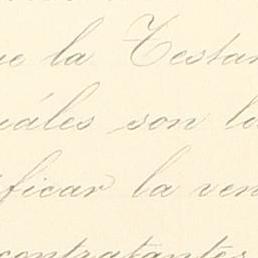 ue la Testam
uáles son la
ificar la ven
contratantes